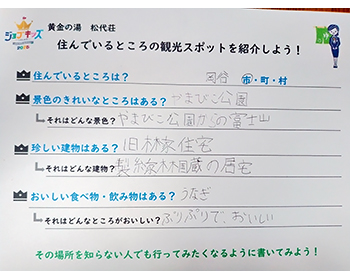 ジョブキッズ
黄金の湯 松代荘
住んでいるところの観光スポットを紹介しよう！
住んでいるところは？ 岡谷 市・町・村
景色のきれいなところはある？ やまびこ公園
それはどんな景色？ やまびこ公園からの富士山
珍しい建物はある？ 旧林家住宅
それはどんな建物？ 製糸家林国蔵の居宅
おいしい食べ物・飲み物はある？ うなぎ
それはどんなところがおいしい？ ぷりぷりで、おいしい
その場所を知らない人でも行ってみたくなるように書いてみよう！